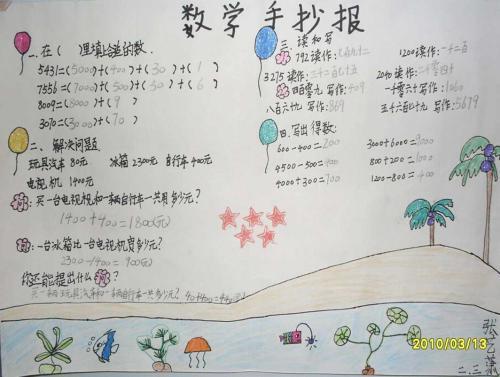 数学手抄报
一、在( )里填上合适的数.
5431=(5000)+(400)+(30)+(1)
7556=(7000)+(500)+(50)+(6)
8009=(8000)+(9)
3070=(3000)+(70)
二、解决问题
玩具汽车 80元 冰箱 2300元 自行车 400元
电视机 1400元
:买一台电视机和一辆自行车一共用多少元?
1400+400=1800(元)
:一台冰箱比一台电视机贵多少元?
2300-1400=900(元)
你还能提出什么?
买一辆玩具汽车和一辆自行车一共多少元?
三、读和写
792读作:七百九十二 1200读作:一千二百
3275读作:三千二百七十五 2040读作:二千零四十
四百零九 写作:409 一千零六十 写作:1060
八百六十九 写作:869 五千六百七十九 写作:5679
四、写出得数:
600-400=200 3000+6000=9000
4500-500=400 800+200=1000
4000+300=700 1200-800=400
张
二.三
2010/03/13